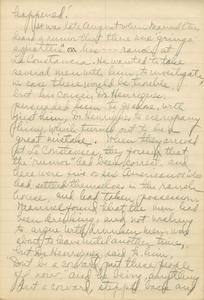 happened!
It was late August when Manuel Ortiz
heard a rumor that there were gringo
squatters on his ranch, at
La Constancia. He wanted to take
several men with him, to investigate,
in case there would be trouble,
but his cousin Don Henrique
persuaded him to go alone, with
just him, Don Henrique, to accompany
him, which turned out to be a
great mistake. When they arrived
at La Constancia, they found that
the "rumor" had been correct, and
there were five or six Americanos who
had settled themselves in the ranch
house, and had taken possession.
Manuel found that the men had
been drinking, and not wishing
to argue with drunken men was
about to leave until another time,
but Don Henrique said to him,
"Don't be a coward, put these people
off now", and he being anything
but a coward, stepped back and